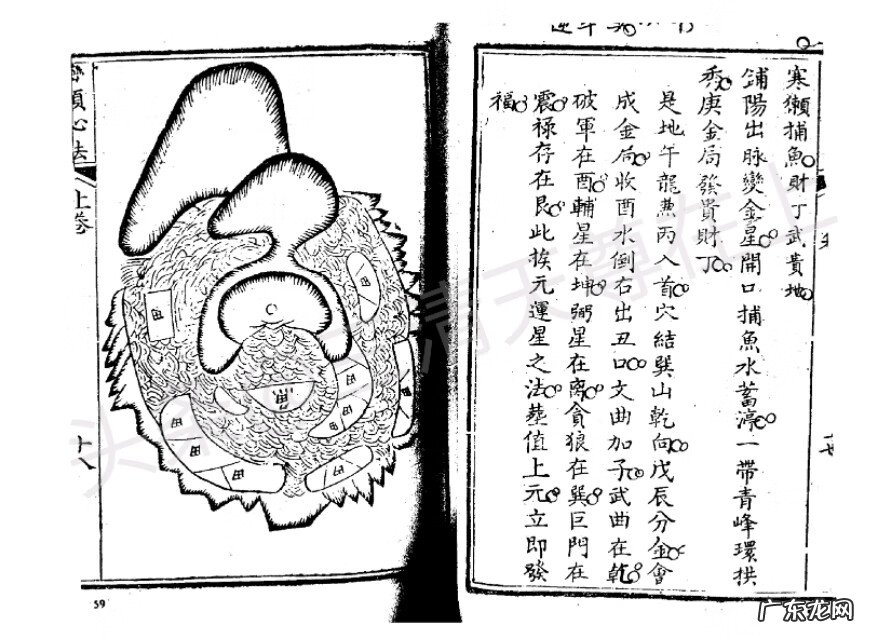 寒獺捕魚財丁武貴地
鋪陽出脉變金星開口捕魚水蓄渟一帶青峰環拱
秀庚金局發貴財丁
是地午龍兼丙入首穴結巽山乾向戊辰分金會
成金局收酉水倒右出丑口文曲加子武曲在乾
破軍在酉輔星在坤弼星在离貪狼在巽巨門在
震禄存在艮此挨元運星之法葬值上元立即發
福
頭心法
上卷
十八
田
田
田
田
田
田
田
田
田
59
广东龙网